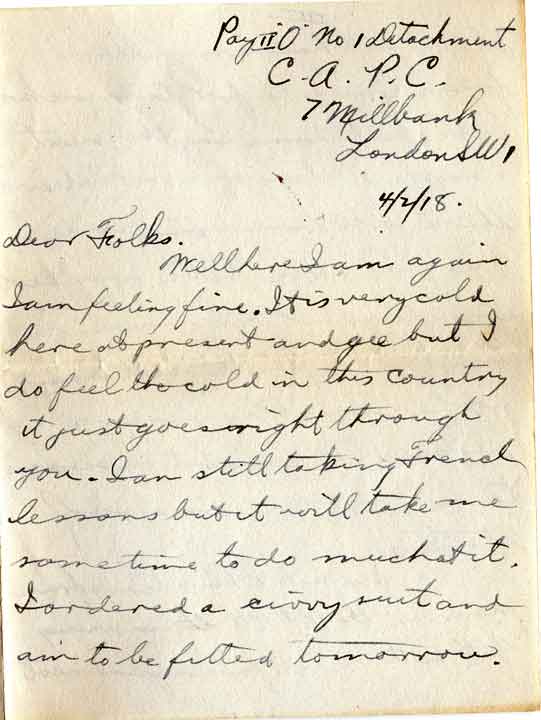 Pay II "O" No 1 Detachment
C. A. P. C.
7 Millbank
London SW1
4/2/18.
Dear Folks.
Well here I am again
I am feeling fine. It is very cold
here at present and gee but I
do feel the cold in this country
it just goes right through
you. I am still taking French
lessons but it will take me
some time to do much at it.
I ordered a civvy suit and
aim to be fitted tomorrow.